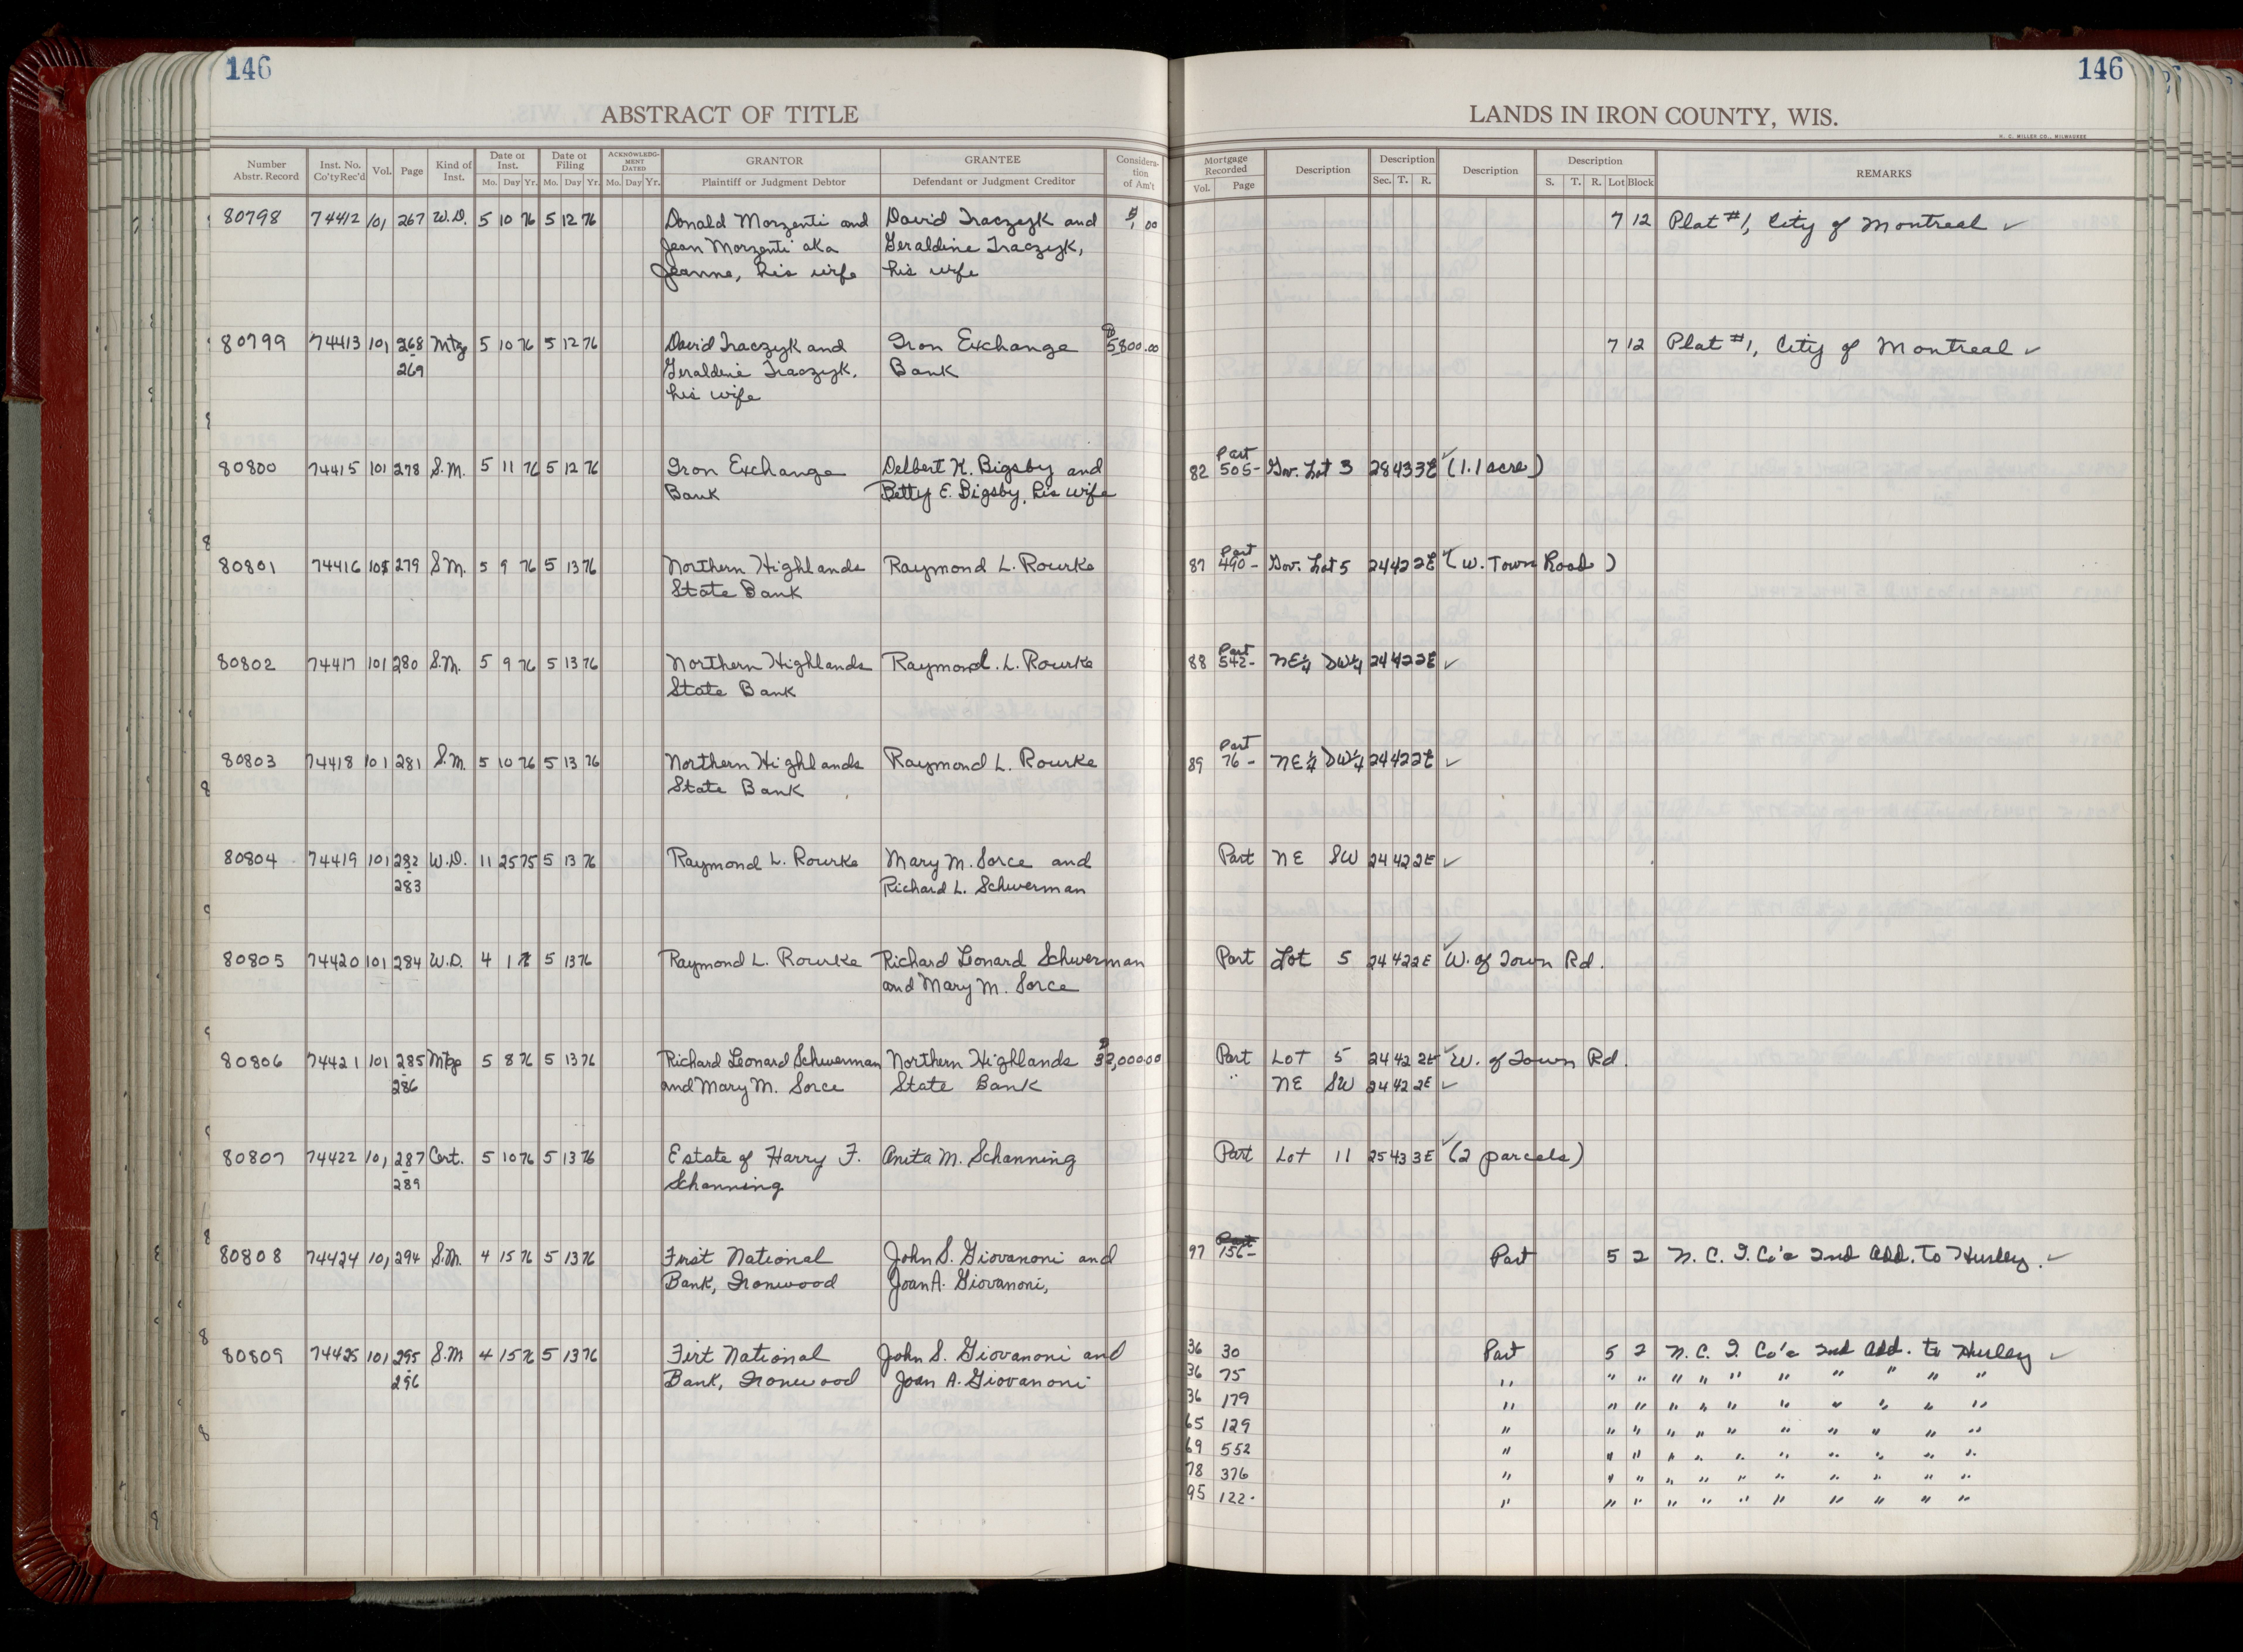 146
146
ABSTRACT OF TITLE
LANDS IN IRON COUNTY, WIS.
H. C. MILLER CO., MILWAUKEE
Number Abstr. Record
Inst. No. Co'ty Rec'd
Vol.
Page
Kind of Inst.
Date of Inst.
Mo. Day Yr.
Date of Filing
Mo. Day Yr.
ACKNOWLEDGMENT DATED
Mo. Day Yr.
GRANTOR
Plaintiff or Judgment Debtor
GRANTEE
Defendant or Judgment Creditor
Consideration of Am't
Mortgage Recorded
Vol. Page
Description
Description
Sec. T. R.
Description
Description
S. T. R. Lot Block
REMARKS
80798 74412 101 267 W.D. 5 10 76 5 12 76 Donald Morzenti and David Traczyk and $1.00 7 12 Plat #1, City of Montreal ✓
Jean Morzenti aka Geraldine Traczyk,
Jeanne, his wife his wife
80799 74413 101 268 Mtg 5 10 76 5 12 76 David Traczyk and Iron Exchange $5800.00 7 12 Plat #1, City of Montreal ✓
- 269 Geraldine Traczyk, Bank
his wife
80800 74415 101 278 S.M. 5 11 76 5 12 76 Iron Exchange Delbert K. Bigsby and 82 Part 505- Gov. Lot 3 28 43 3E ✓ (1.1 acre)
Bank Betty E. Bigsby, his wife
80801 74416 101 279 S.M. 5 9 76 5 13 76 Northern Highlands Raymond L. Rourke 87 Part 490- Gov. Lot 5 24 42 2E ✓ (W. Town Road)
State Bank
80802 74417 101 280 S.M. 5 9 76 5 13 76 Northern Highlands Raymond. L. Rourke 88 Part 542- NE¼ SW¼ 24 42 2E ✓
State Bank
80803 74418 101 281 S.M. 5 10 76 5 13 76 Northern Highlands Raymond L. Rourke 89 Part 76- NE¼ SW¼ 24 42 2E ✓
State Bank
80804 74419 101 282 W.D. 11 25 75 5 13 76 Raymond L. Rourke Mary M. Sorce and Part NE SW 24 42 2E ✓
- 283 Richard L. Schwerman
80805 74420 101 284 W.D. 4 1 76 5 13 76 Raymond L. Rourke Richard Leonard Schwerman Part Lot 5 24 42 2E ✓ W. of Town Rd.
and Mary M. Sorce
80806 74421 101 285 Mtge 5 8 76 5 13 76 Richard Leonard Schwerman Northern Highlands $32,000.00 Part Lot 5 24 42 2E ✓ W. of Town Rd.
- 286 and Mary M. Sorce State Bank " NE SW 24 42 2E ✓
80807 74422 101 287 Cert. 5 10 76 5 13 76 Estate of Harry F. Anita M. Schanning Part Lot 11 25 43 3E ✓ (2 parcels)
- 289 Schanning
80808 74424 101 294 S.M. 4 15 76 5 13 76 First National John S. Giovanoni and 97 Part 156- Part 5 2 N. C. I. Co's 2nd Add. to Hurley. ✓
Bank, Ironwood Joan A. Giovanoni,
80809 74425 101 295 S.M 4 15 76 5 13 76 Firt National John S. Giovanoni and 36 30 Part 5 2 N. C. I Co's 2nd Add. to Hurley ✓
- 296 Bank, Ironwood Joan A. Giovanoni 36 75 " " " " " " " " " " "
36 179 " " " " " " " " " " "
65 129 " " " " " " " " " " "
69 552 " " " " " " " " " " "
78 376 " " " " " " " " " " "
95 122- " " " " " " " " " " "